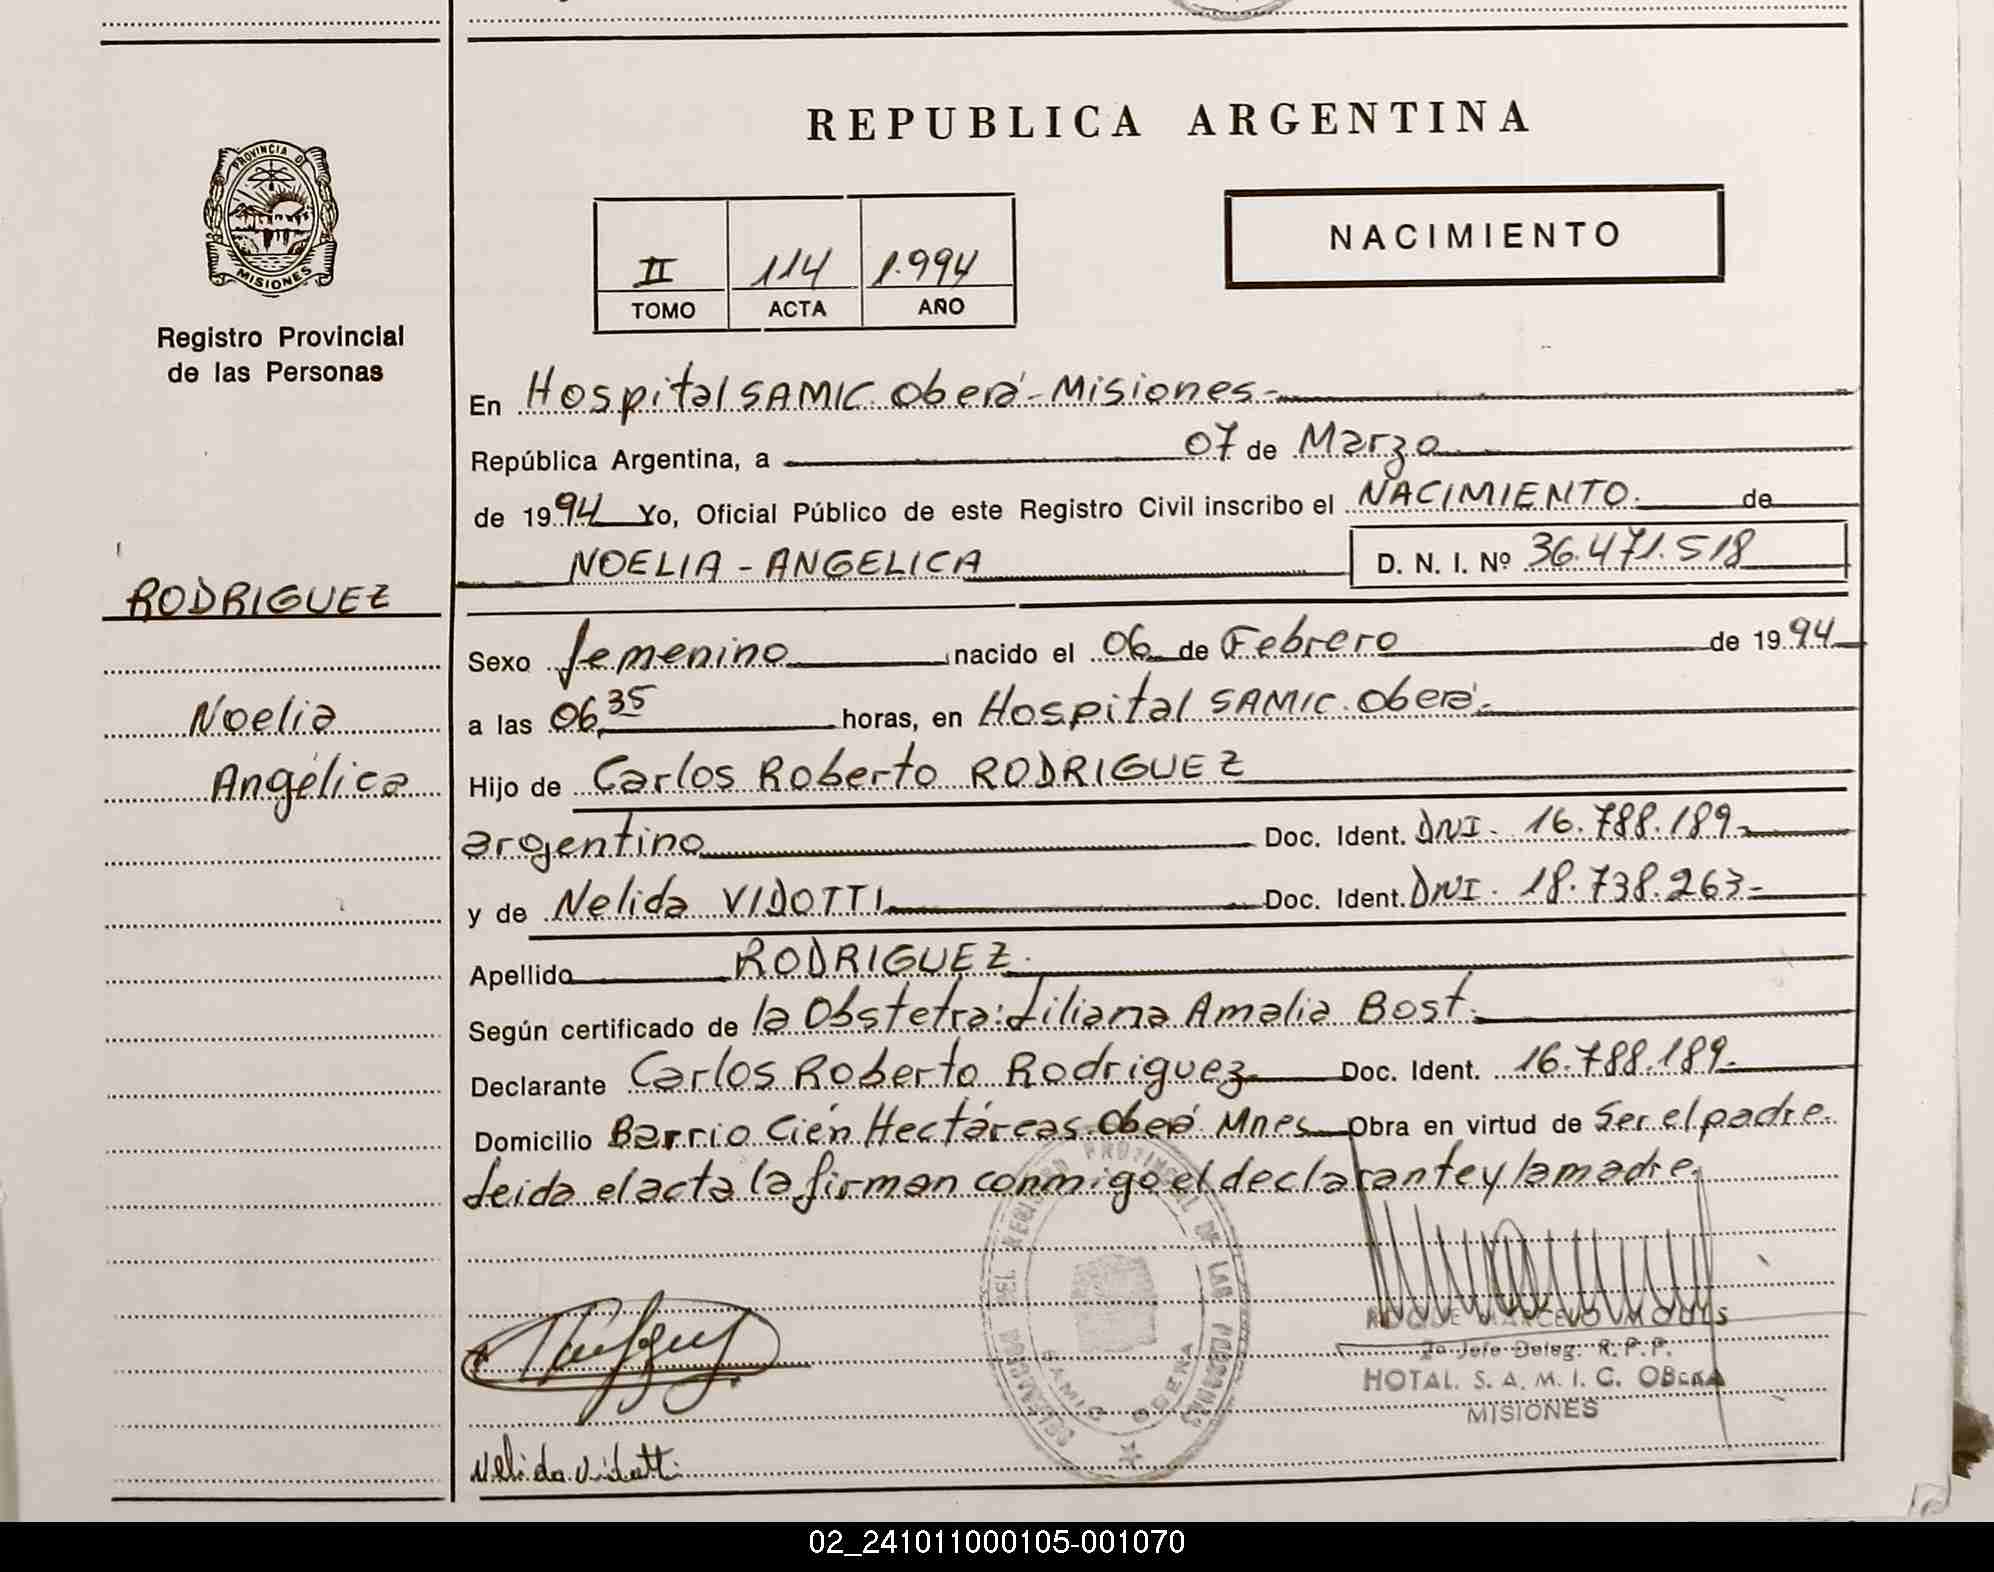 REPUBLICA ARGENTINA
PROVINCIA D
MISIONES
Registro Provincial
de las Personas
II 114 1.994
TOMO ACTA AÑO
NACIMIENTO
En Hospital SAMIC. Oberá - Misiones -
República Argentina, a 07 de Marzo
de 1994 Yo, Oficial Público de este Registro Civil inscribo el NACIMIENTO. de
NOELIA - ANGELICA D. N. I. Nº 36.471.518
RODRIGUEZ
Noelia
Angélica
Sexo femenino nacido el 06 de Febrero de 1994
a las 06,35 horas, en Hospital SAMIC. Oberá.-
Hijo de Carlos Roberto RODRIGUEZ
argentino Doc. Ident. DNI. 16.788.189-
y de Nelida VIDOTTI Doc. Ident. DNI. 18.738.263-
Apellido RODRIGUEZ.
Según certificado de la Obstetra: Liliana Amalia Bost.
Declarante Carlos Roberto Rodriguez Doc. Ident. 16.788.189-
Domicilio Barrio Cién Hectáreas. Oberá Mnes Obra en virtud de Ser el padre.
Leida el acta la firman conmigo el declarante y la madre.
REGISTRO PROVINCIAL DE LAS PERSONAS
SAMIC
ROQUE MARCELO
2º Jefe Deleg. R. P. P.
HOTAL. S. A. M. I. C. OBERA
MISIONES
Nelida Vidotti
02_241011000105-001070